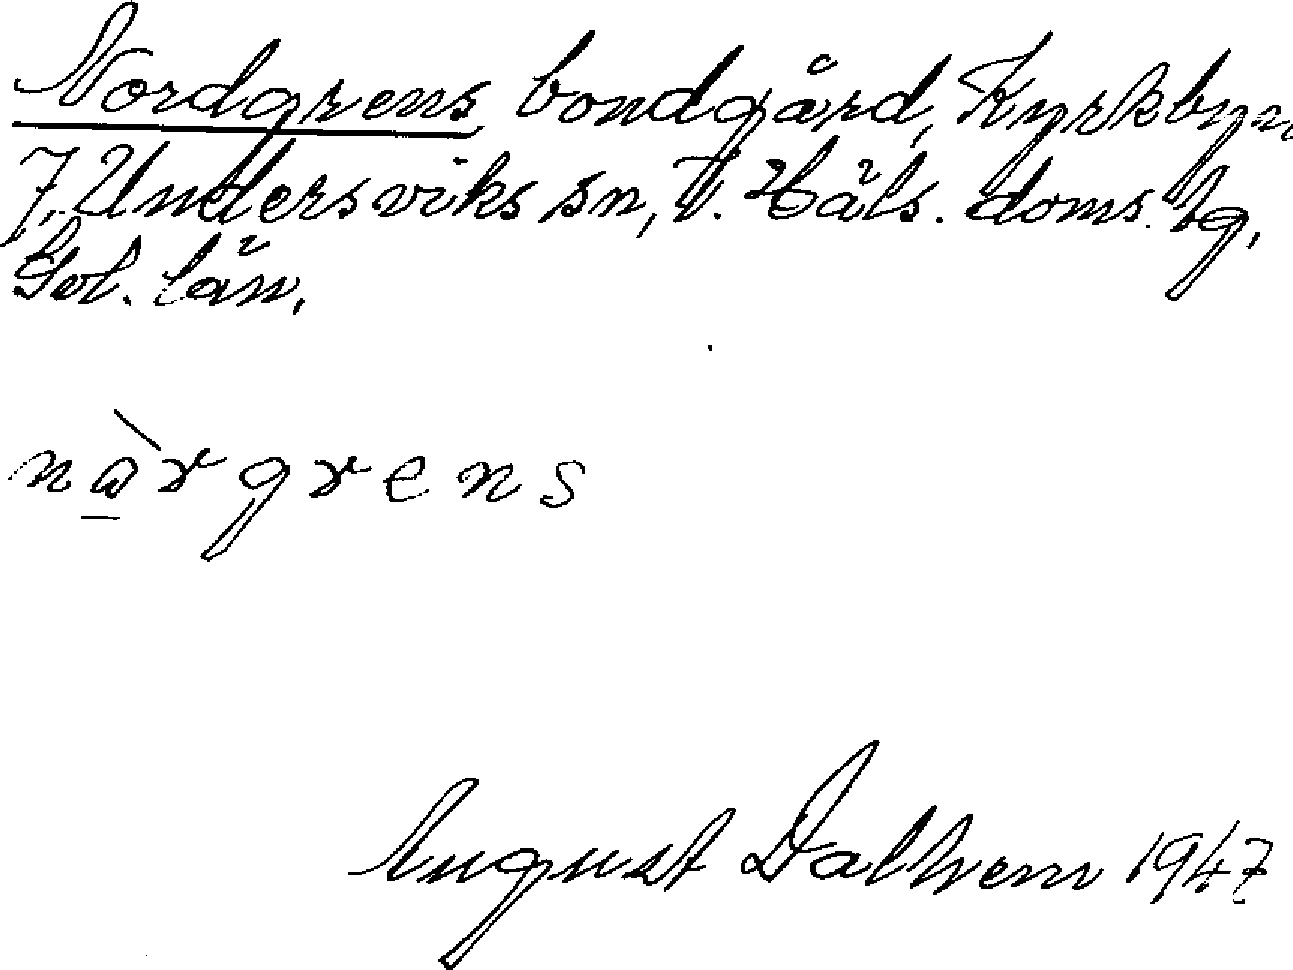 Nordgrens bondgård, Kyrkbyn
7, Undersviks sn, V. Häls. doms. hg,
Gvl. län.
nàrgrens
August Dalhem 1947